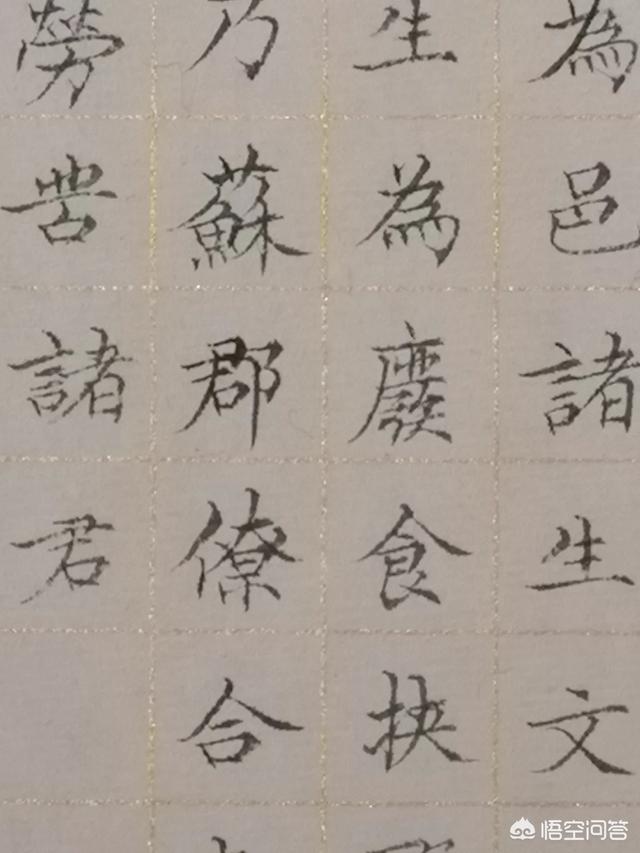 為邑諸生文
生為廢食抉
乃蘇郡僚合
勞苦諸君
悟空问答